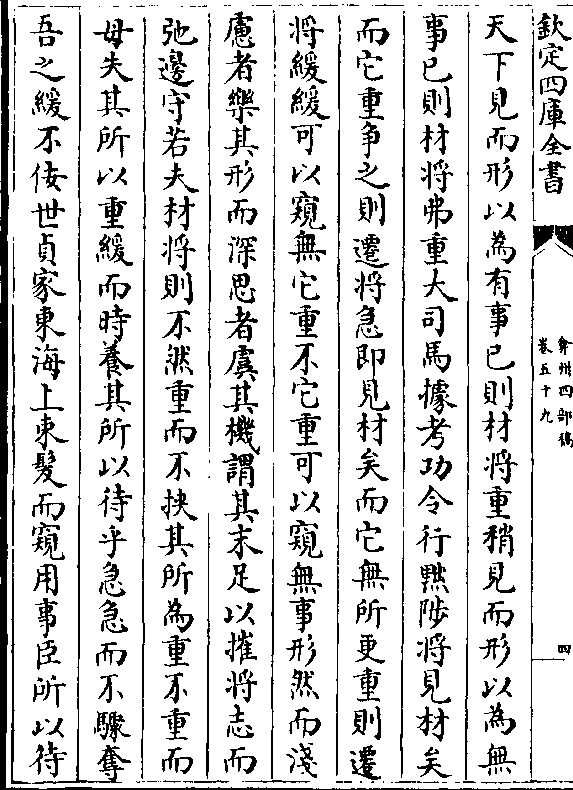 欽定四庫全書
弇州四部稿
卷五十九
四
天下見而形以為有事已則材將重稍見而形以為無
事已則材將弗重大司馬據考功令行黜陟將見材矣
而它重爭之則遷將急即見材矣而它無所更重則遷
將緩緩可以窺無它重不它重可以窺無事形然而淺
慮者樂其形而深思者虞其機謂其末足以摧將志而
弛邊守若夫材將則不然重而不挾其所為重不重而
毋失其所以重緩而時養其所以待乎急急而不驟奪
吾之緩不佞世貞家東海上束髮而窺用事臣所以待